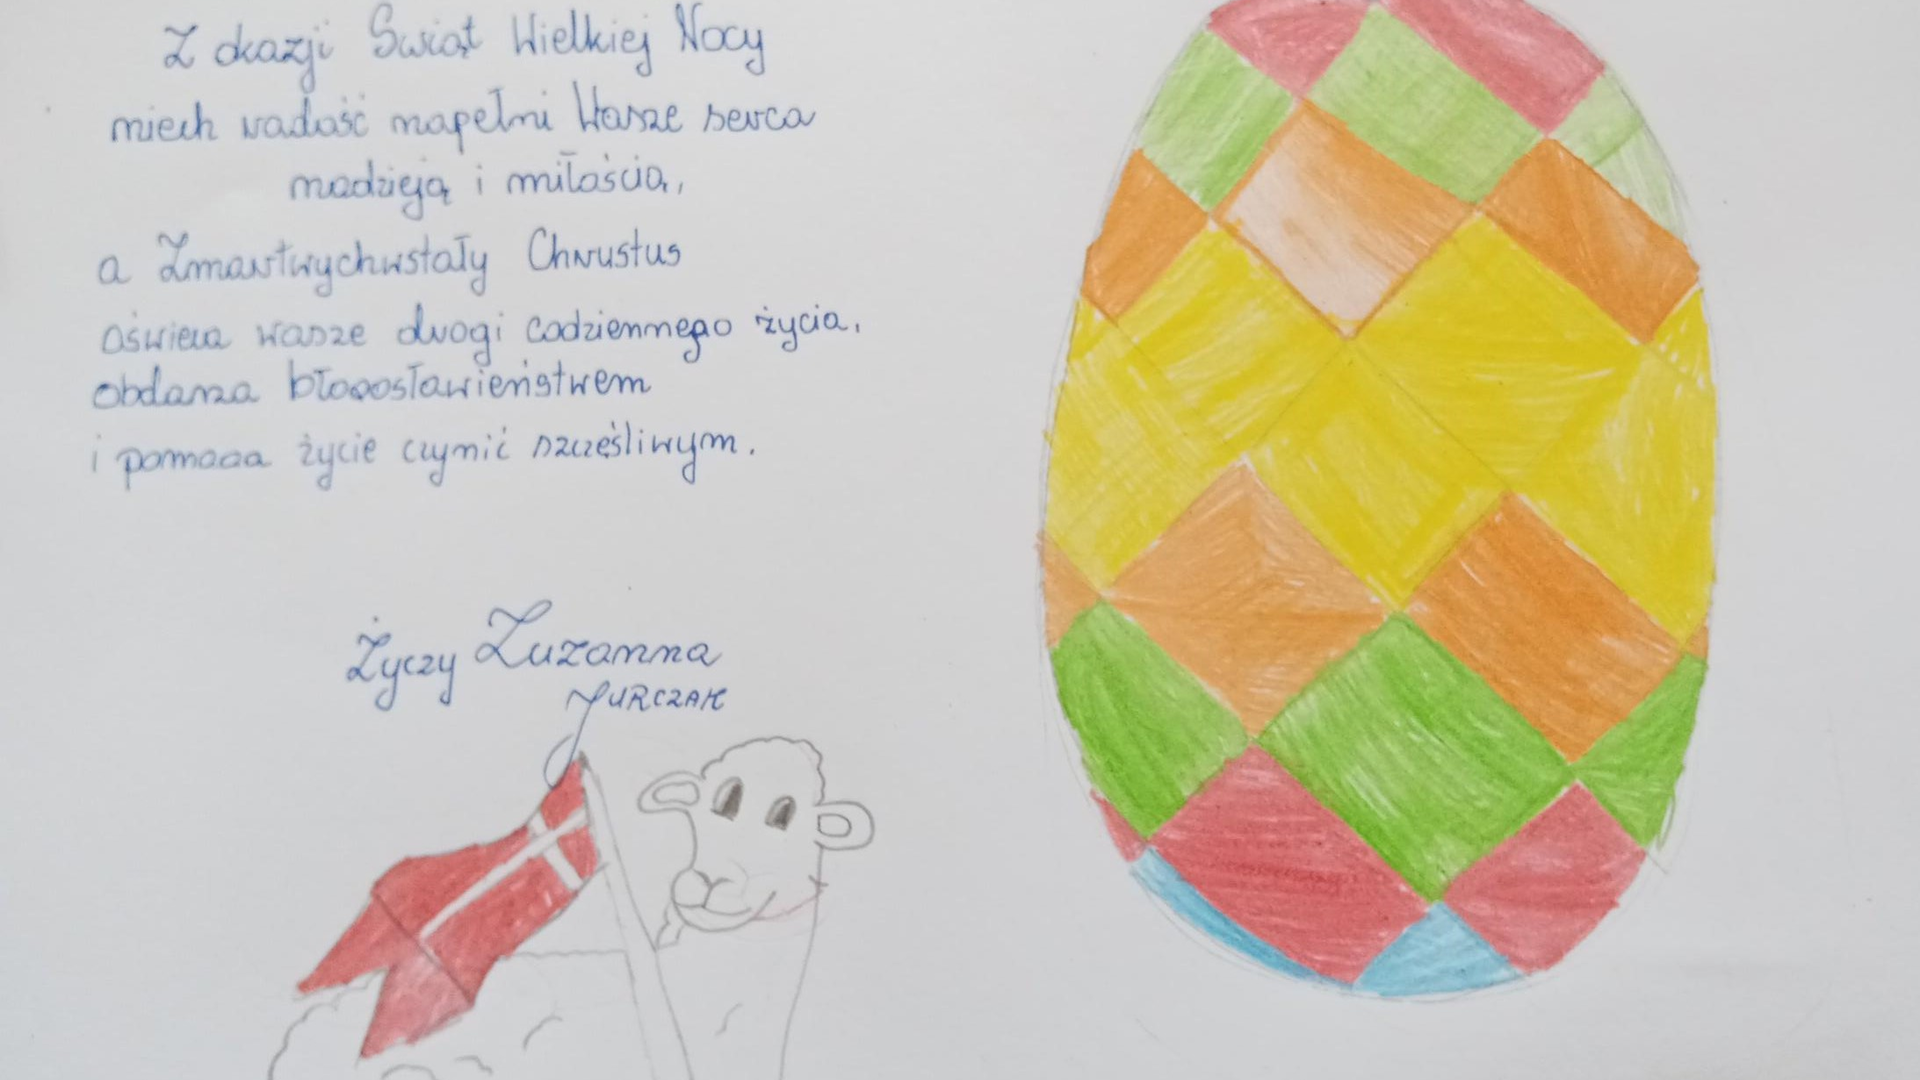 Z okazji Świąt Wielkiej Nocy
niech radość napełni Wasze serca
nadzieją i miłością,
a Zmartwychwstały Chrustus
oświeca wasze drogi codziennego życia,
obdarza błogosławieństwem
i pomaga życie czynić szczęśliwym.
Życzy Zuzanna
JURCZAK